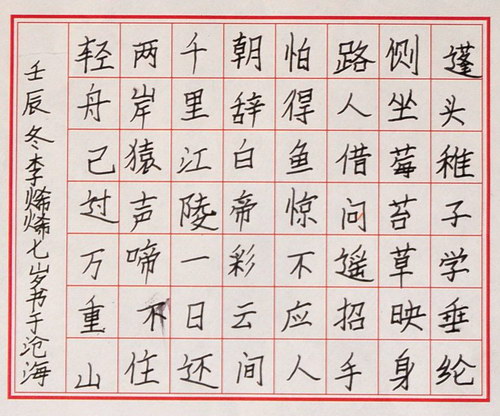 蓬头稚子学垂纶
侧坐莓苔草映身
路人借问遥招手
怕得鱼惊不应人
朝辞白帝彩云间
千里江陵一日还
两岸猿声啼不住
轻舟已过万重山
壬辰冬李烯烯七岁书于沧海